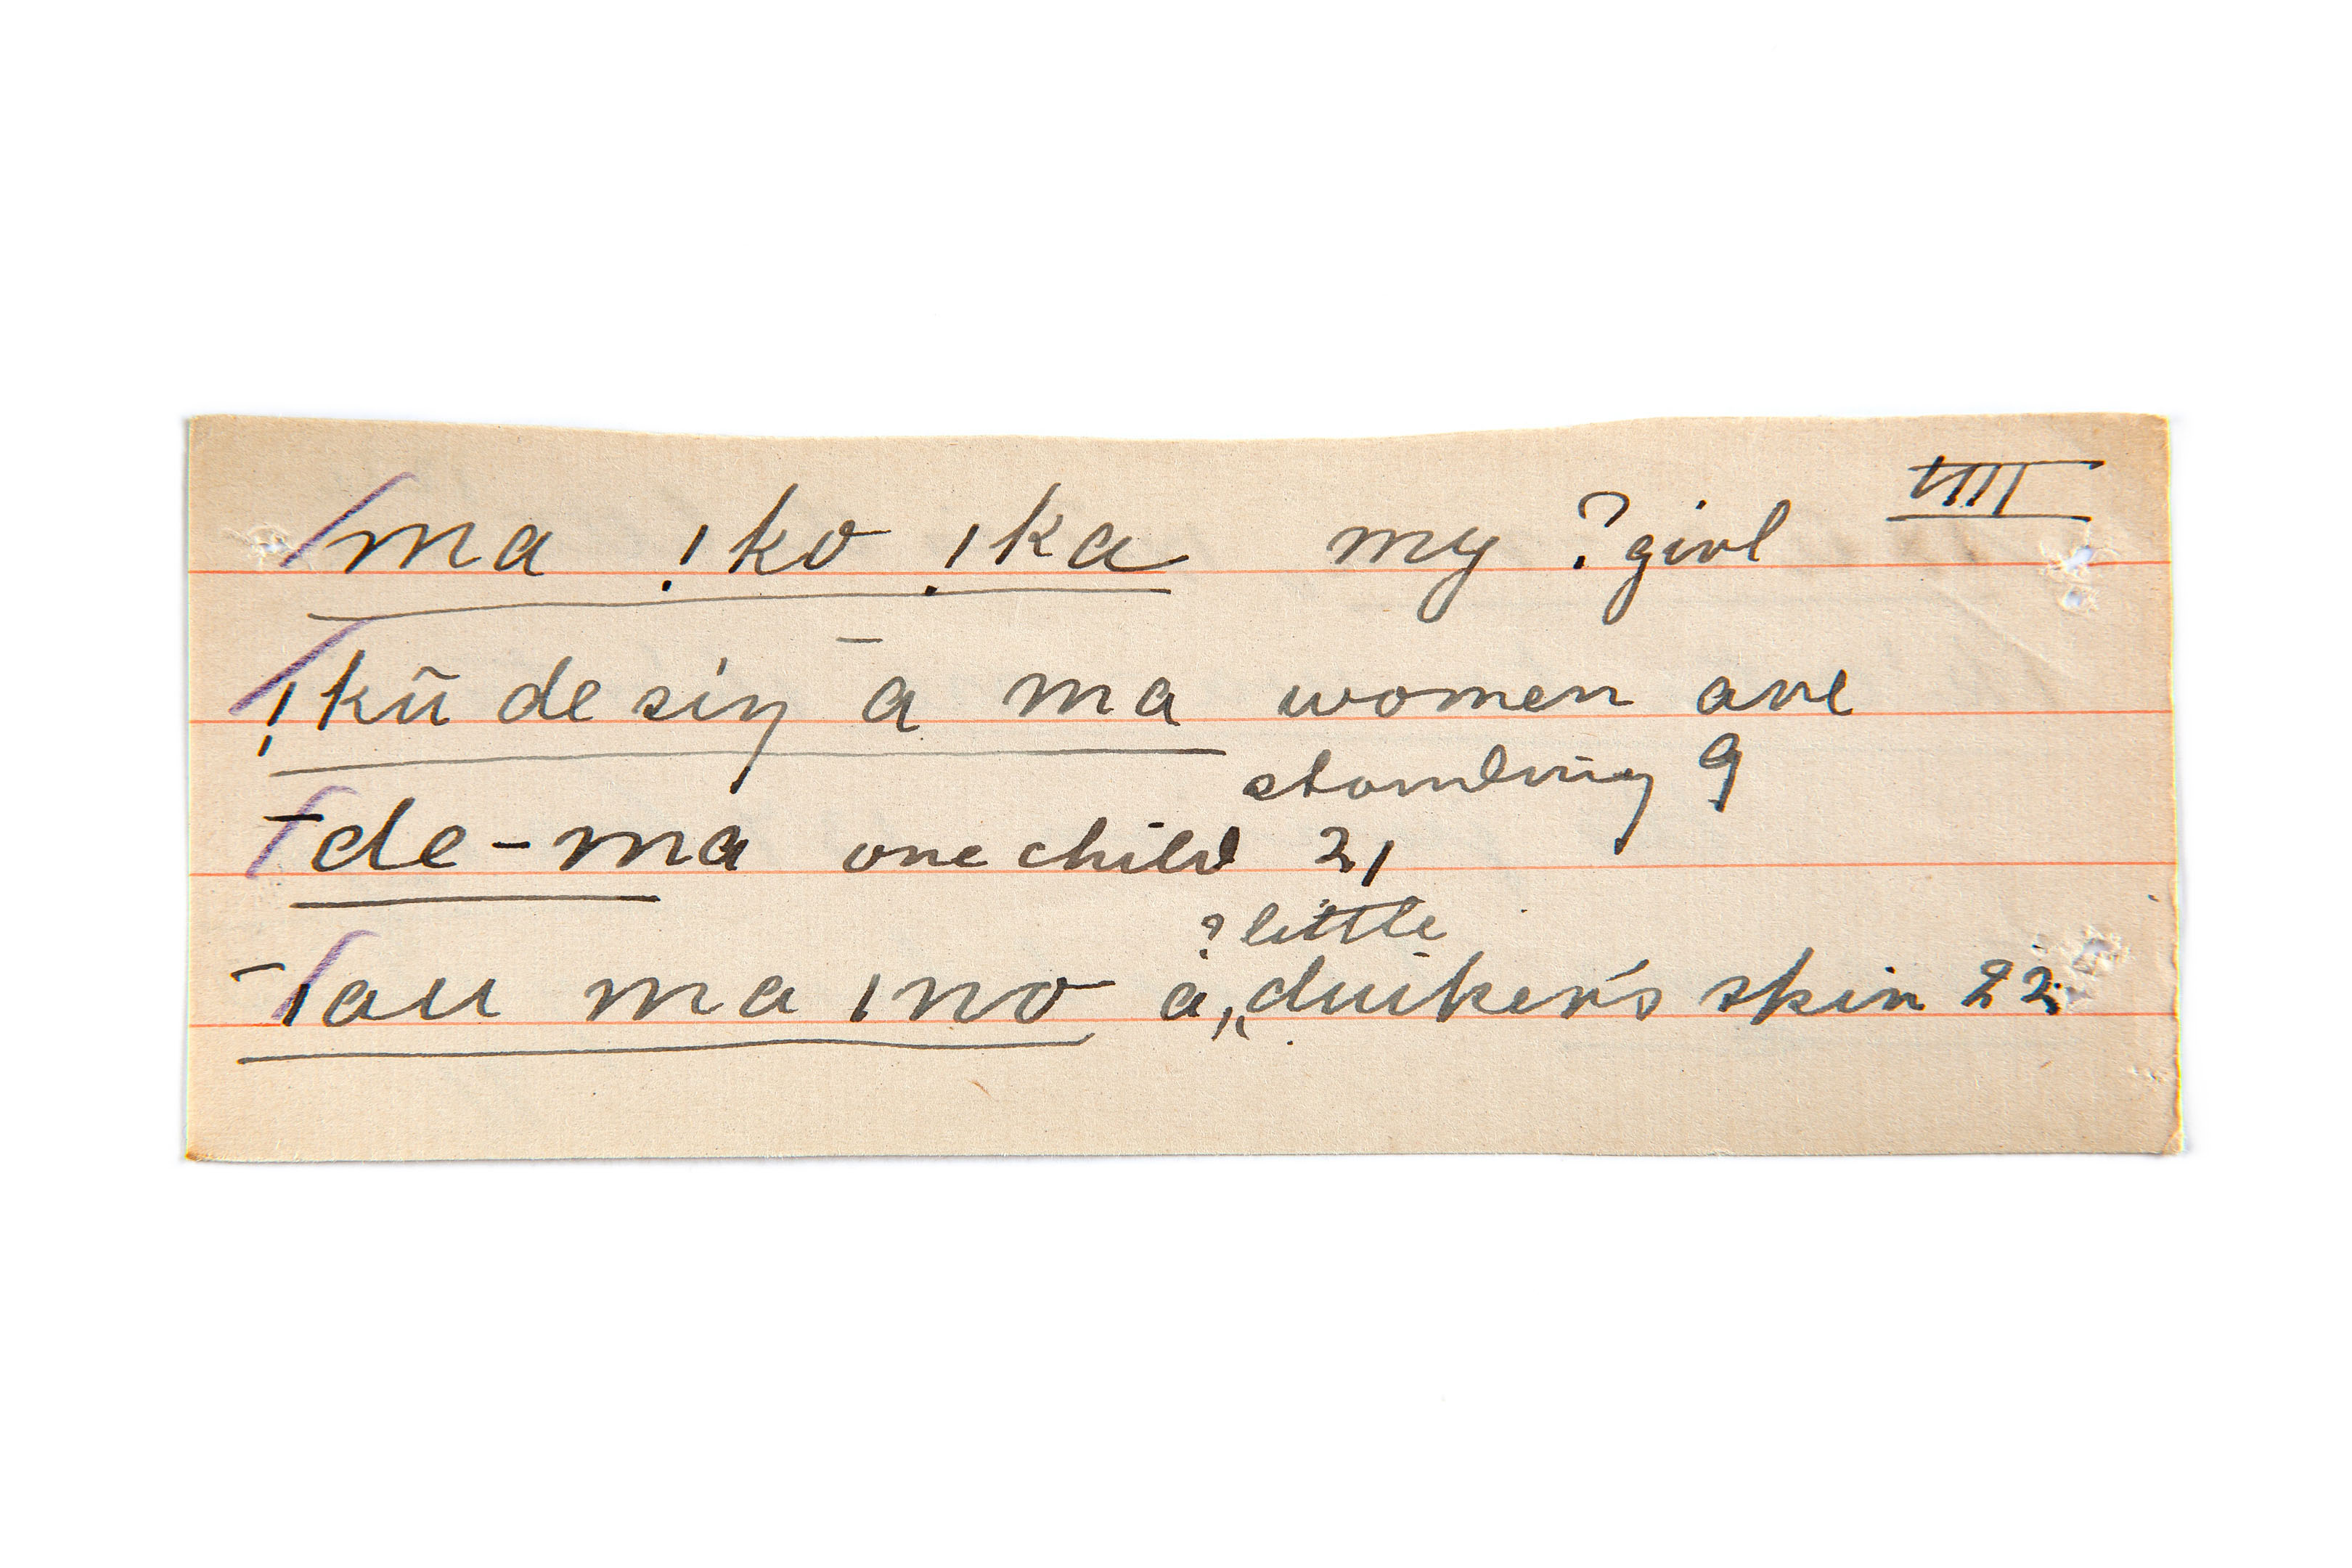 ma !ko !ka my ? girl VIII
!kũ de siŋ ā ma women are
standing 9
de - ma one child 21
? little
ǀau ma ǀno a, duiker's skin 22